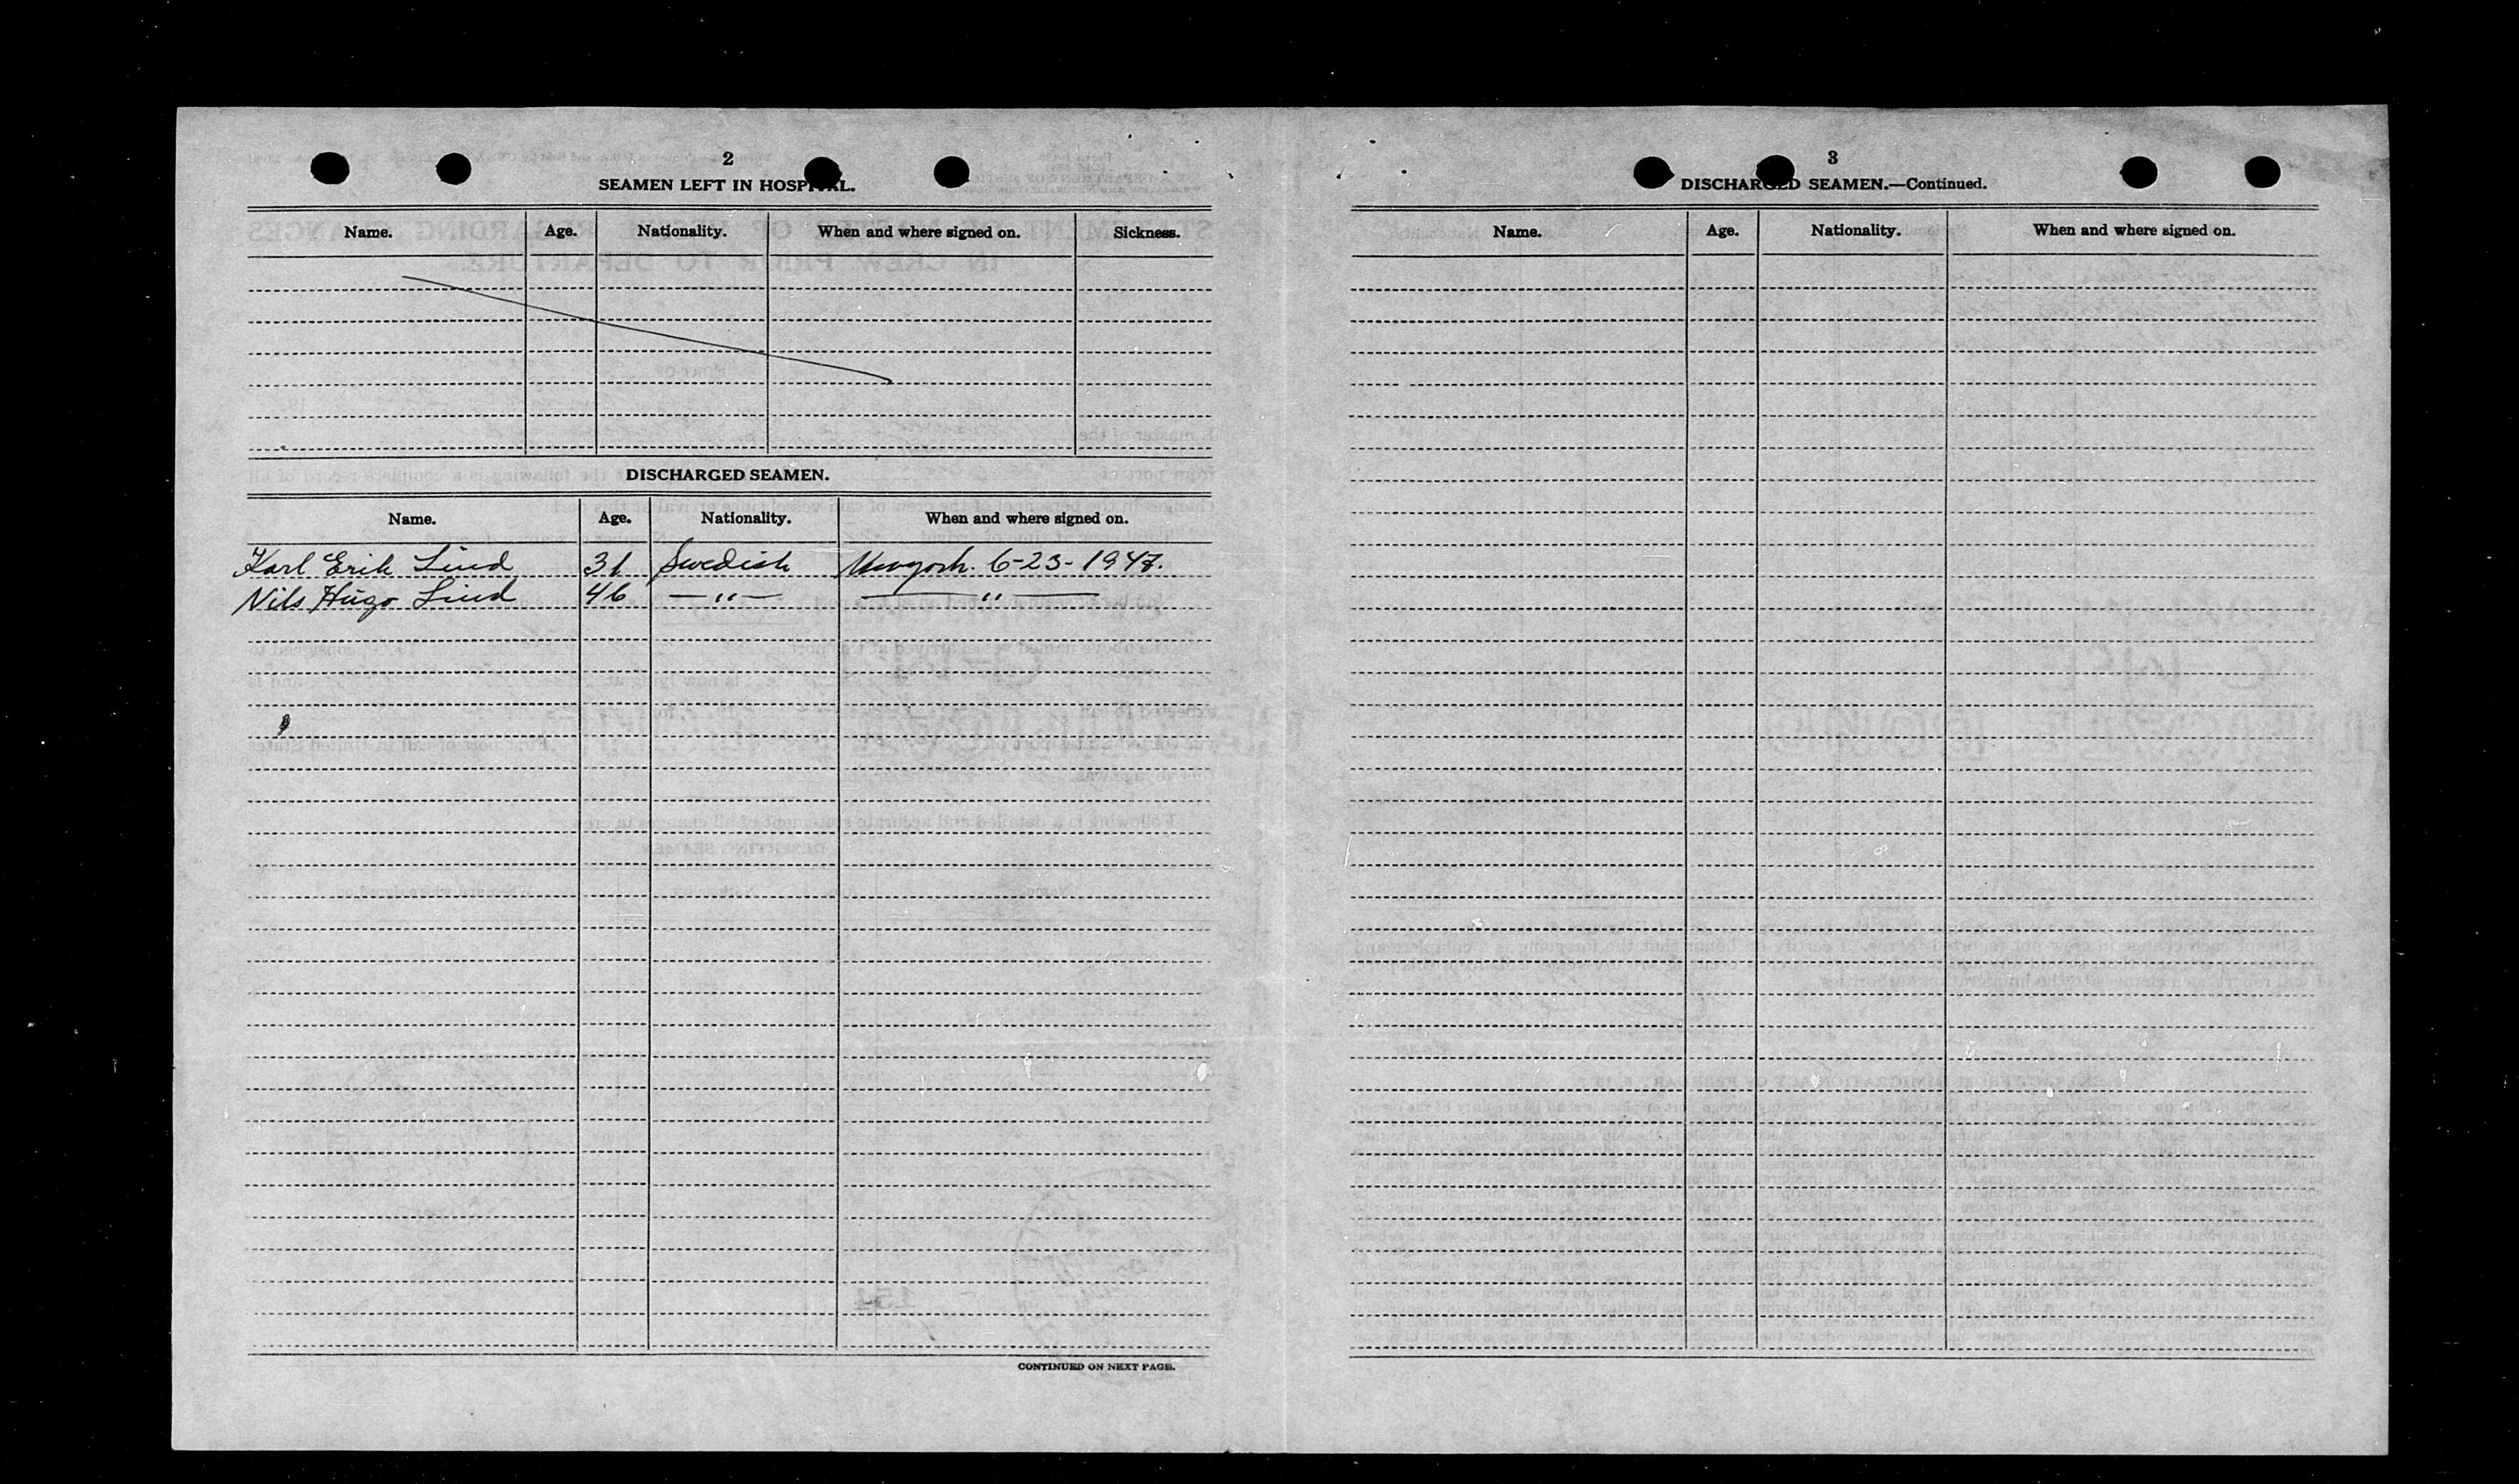 2
SEAMEN LEFT IN HOSPITAL.
Name. Age. Nationality. When and where signed on. Sickness.
DISCHARGED SEAMEN.
Name. Age. Nationality. When and where signed on.
Karl Erik Lind 31 Swedish Newyork. 6-23-1947.
Nils Hugo Lind 46 — " — — " —
CONTINUED ON NEXT PAGE.
3
DISCHARGED SEAMEN.—Continued.
Name. Age. Nationality. When and where signed on.